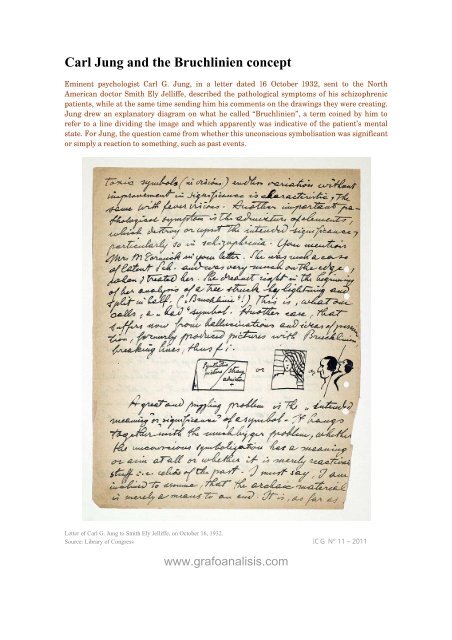 Carl Jung and the Bruchlinien concept
Eminent psychologist Carl G. Jung, in a letter dated 16 October 1932, sent to the North
American doctor Smith Ely Jelliffe, described the pathological symptoms of his schizophrenic
patients, while at the same time sending him his comments on the drawings they were creating.
Jung drew an explanatory diagram on what he called "Bruchlinien", a term coined by him to
refer to a line dividing the image and which apparently was indicative of the patient's mental
state. For Jung, the question came from whether this unconscious symbolisation was significant
or simply a reaction to something, such as past events.
toxic symbols (in visions) endless variation without
improvement in significance is characteristic, the
same with fever visions. Another important pa-
thological symptom is the admixture of elements,
which destroy or upset the intended significance,
particularly so in schizophrenia. You mention
Mrs McCormick in your letter. She was such a case
of latent Sch. and was very much on the edge,
when I treated her. She dreamt right in the beginning
of her analysis of a tree struck by lightning and
split in half. ("Bruchlinie"!) This is, what one
calls, a "bad" symbol. Another case, that
suffers now from hallucinations and ideas of persecu-
tion, formerly produced pictures with Bruchlinien
breaking lines, thus f.i.:
picture
strange
admixture
or
or
A great and puzzling problem is the "intended
meaning" or significance of a symbol. It hangs
together with the much bigger problem, whether
the unconscious symbolization has a meaning
or aim at all or whether it is merely reactive
stuff i.e. relics of the past. I must say, I am
inclined to assume, that the archaic material
is merely a means to an end. It is, as far as
Letter of Carl G. Jung to Smith Ely Jelliffe, on October 16, 1932.
Source: Library of Congress
ICG Nº 11 – 2011
www.grafoanalisis.com